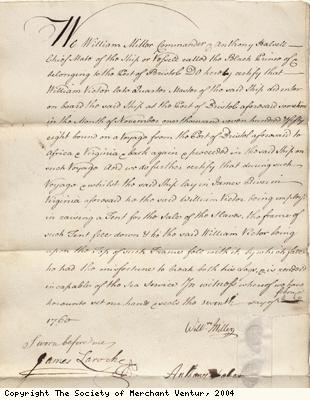 We William Miller Commander & Anthony
Chief Mate of the Ship or Vessell called the Black Prince of &
belonging to the Port of Bristoll Do hereby certify that
William Victor late Quarter Master of the said Ship did enter
on board the said Ship at the Port of Bristoll aforesaid
in the Month of November one thousand seven hundred & fifty
eight bound on a Voyage from the Port of Bristol aforesaid to
Africa & Virginia & back again & proceeded in the said Ship on
such Voyage And we do further certify that during such
Voyage & whilst the said Ship lay in James River in
Virginia aforesaid he the said William Victor being employ'd
in causing a Tent for the Sales of the Slaves, the frame of
such Tent fell down & he the said William Victor being
upon the Top of such Frame fell with it, by which
he had the misfortune to break both his & is rendred
incapable of the Sea Service In witness whereof we have
hereunto set our hands & seals the day of
1760
Willm Miller
Sworn before me
James Laroche
Anthony
Copyright The Society of Merchant Ventur, 2004